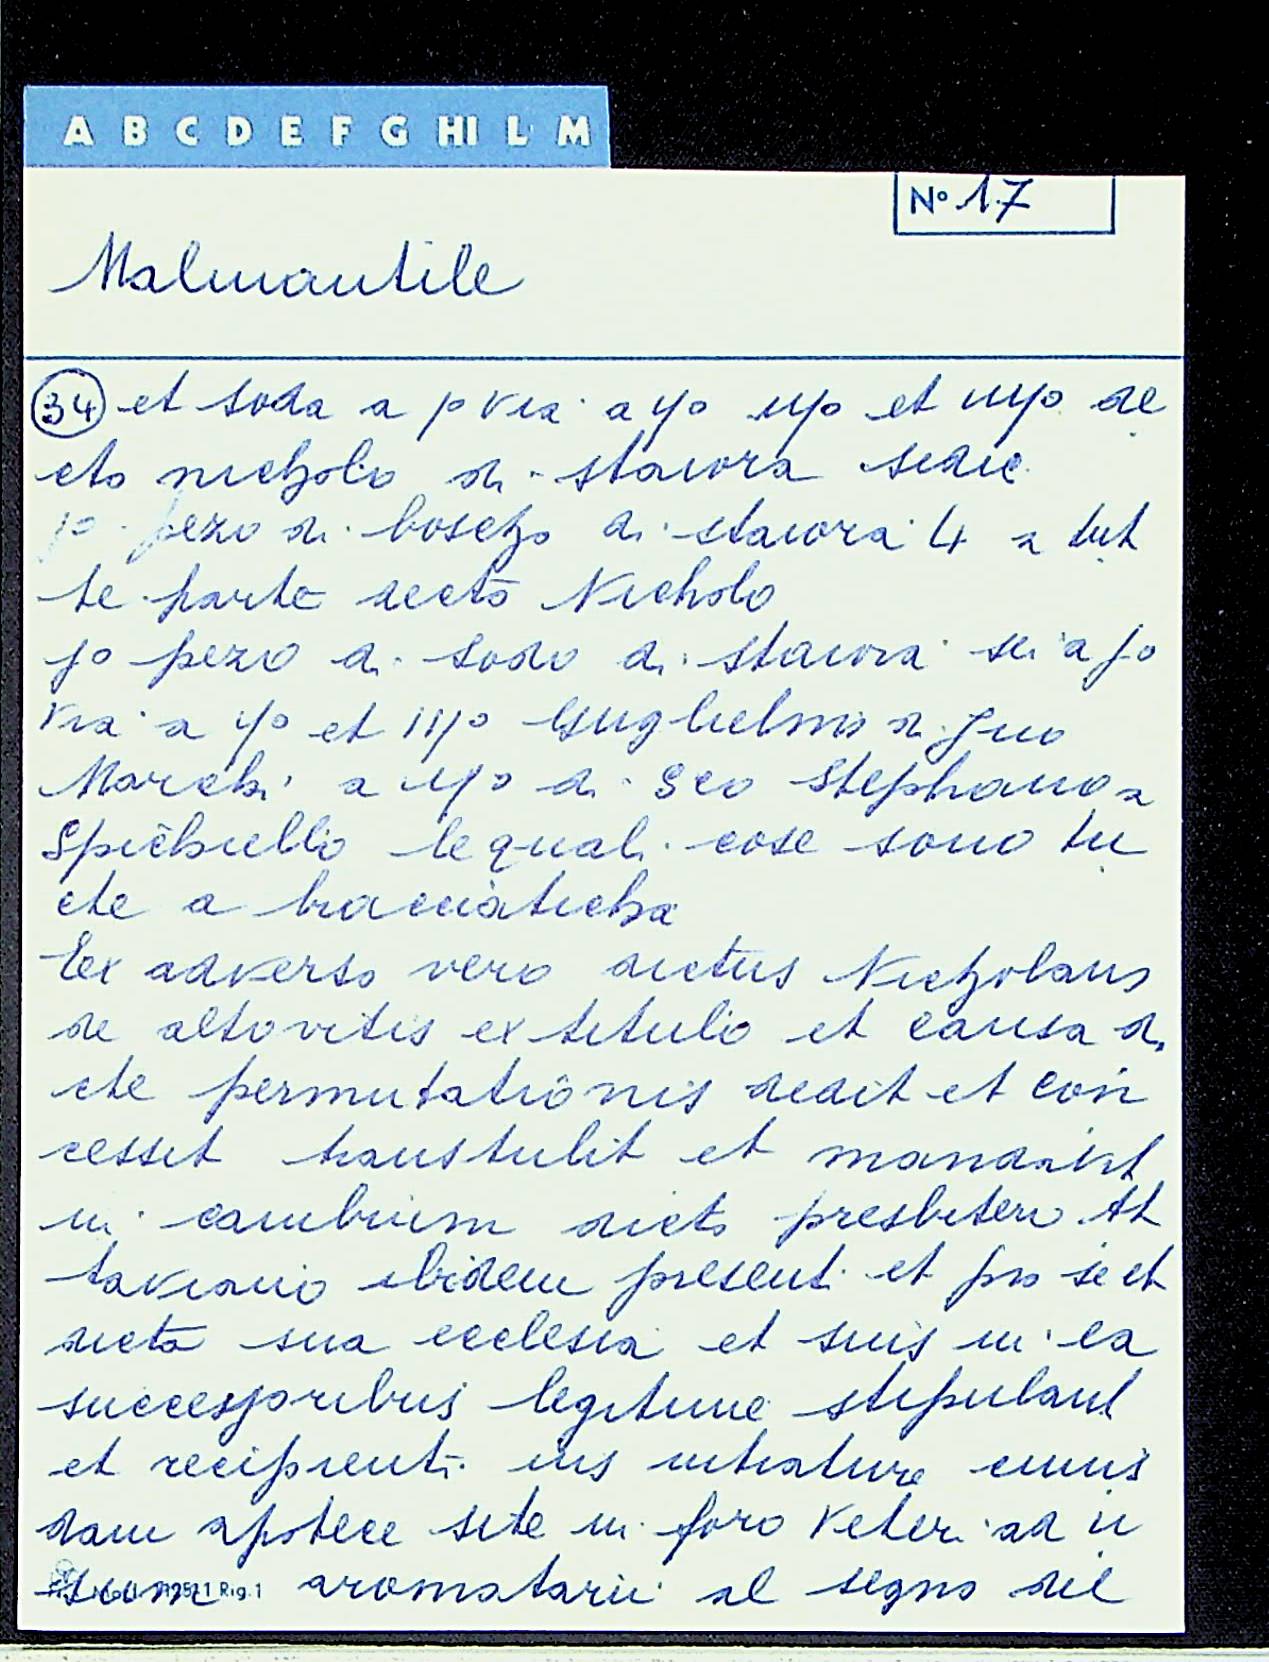 A B C D E F G HI L M
N° 17
Malmantile
34 et soda a p° via a y° iiy° et iiiy° de
cto nicholo di staiora sedic
j° pezo di boscho di staiora 4 a tut
te parte decto Nicholo
j° pezo di sodo di staiora sei a j°
via a ij° et iij° Guglielmo di Juo
Marchi a iiij° di Seo Stephano a
Spichiello le quali cose sono tu
cte a bracciaticha
Ex adverso vero dictus Nicholaus
de altovitis ex titulo et causa di
cte permutationis dedit et con
cessit transtulit et mandavit
in cambium dicto presbitero At
taviano ibidem presenti et pro se et
dicta sua ecclesia et suis in ea
successoribus legitime stipulant
et recipienti ius intrature cuius
dam apotece site in foro Veteri ad u
sum aromatarii al segno del
Rig. 1